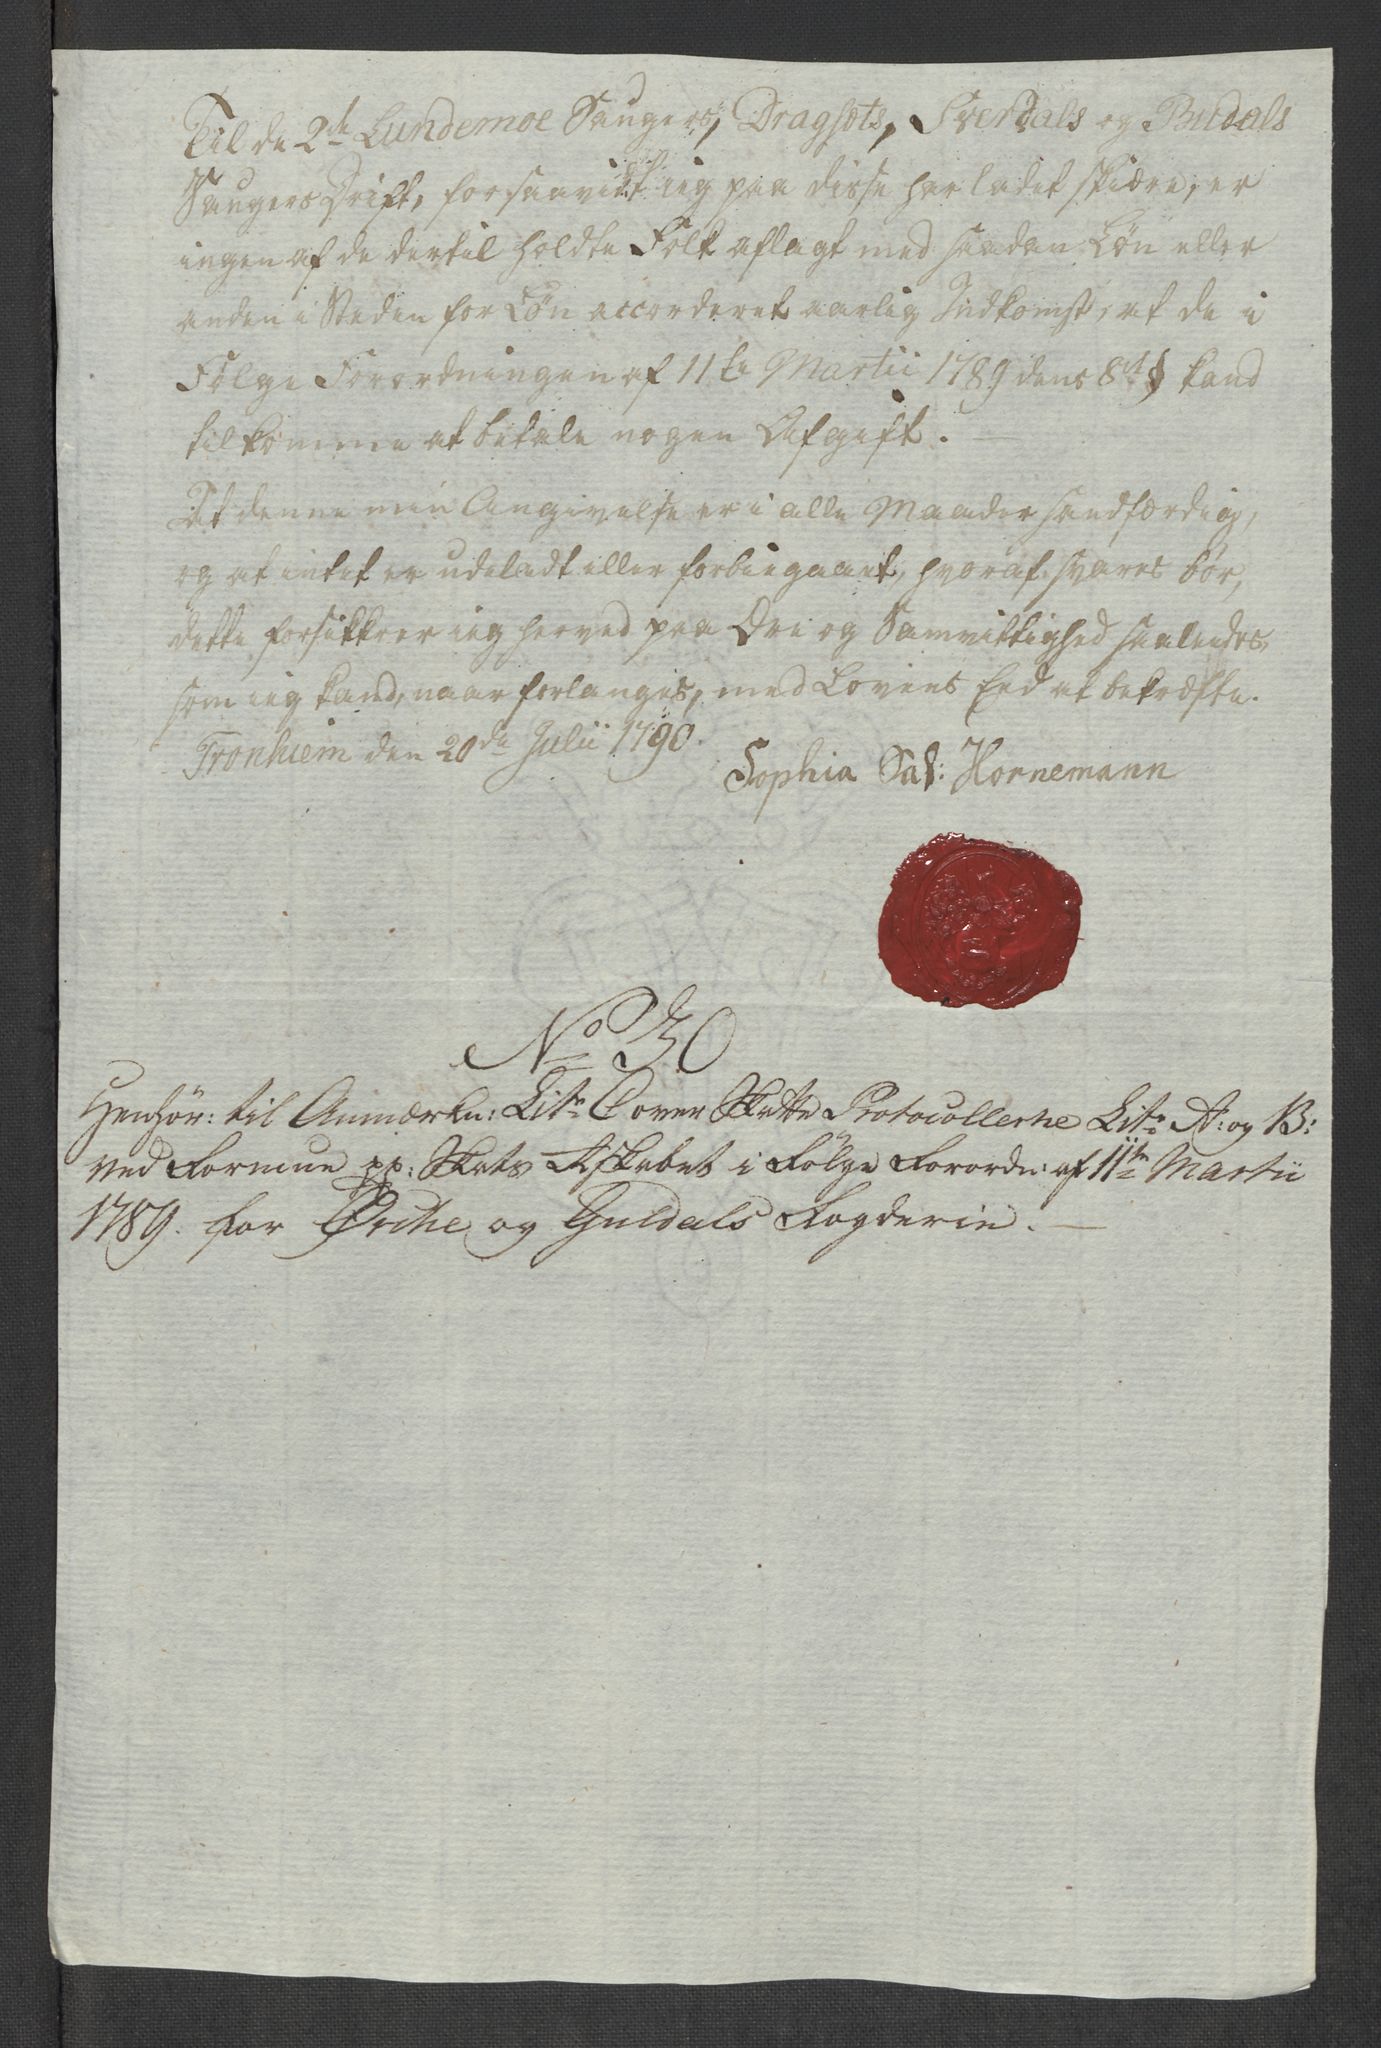 Til de 2de Lundemoe Sauger, Dragsets, Sverdals og Budals
Saugers Drift, forsaavidt jeg paa disse har ladet skiære, er
ingen af de dertil holdte Folk aflagt med saadan Løn eller
anden i Steden for Løn accorderet aarlig Indkomst, at de i
Følge Forordningen af 11te Martii 1789 dens 8de § kand
tilkomme at betale nogen Afgift.
At denne min Angivelse er i alle Maader sandfærdig,
og at intet er udeladt eller forbiegaaet, hvoraf svares bør,
dette forsikkrer ieg herved paa Ære og Samvittighed saaledes,
som ieg kand, naar forlanges, med Lovens Eed at bekræfte.
Tronhiem den 20de Julii 1790.
Sophia Sal: Hornemann
No 30
Henhør: til Anmærkn: Litr C over Skatte Protocollerne Litr A: og B:
ved Formue pp: Skats Regnskabet i Følge Forordn: af 11te Martii
1789. for Ørche og Guldals Fogderie.